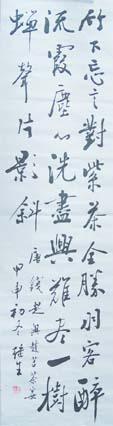 竹下忘言對紫茶全勝羽客醉
流霞塵心洗盡興難尽一樹
蟬聲片影斜
唐錢起與趙莒茶宴
甲申初冬